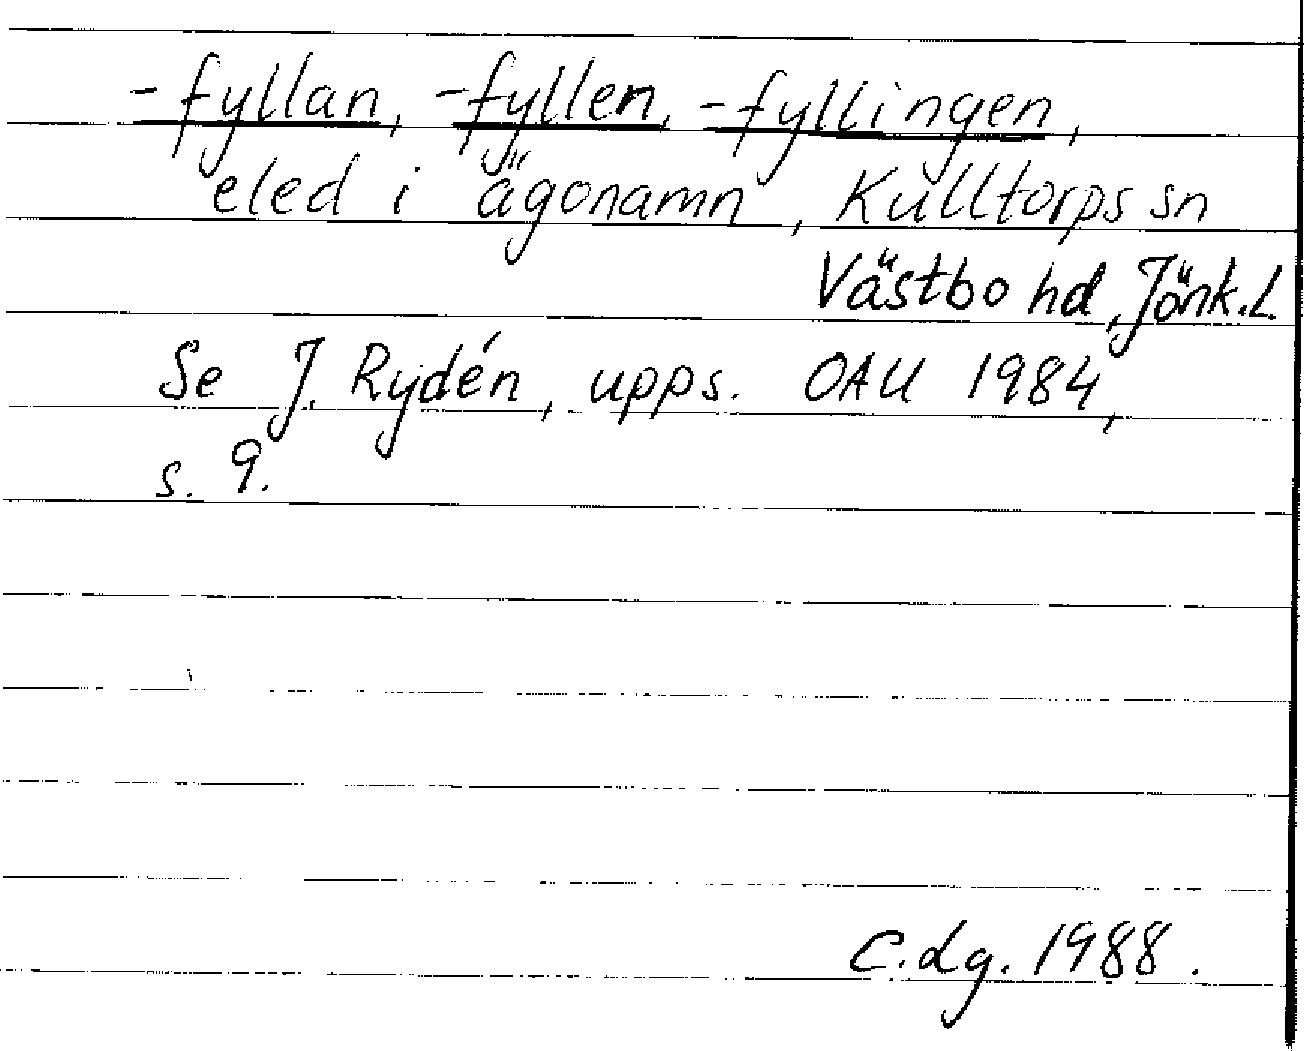 -fyllan, -fyllen, -fyllingen,
eled i ägonamn, Kulltorps sn
Västbo hd, Jönk.L.
Se J. Rydén, upps. OAU 1984,
s. 9.
C.dg. 1988.